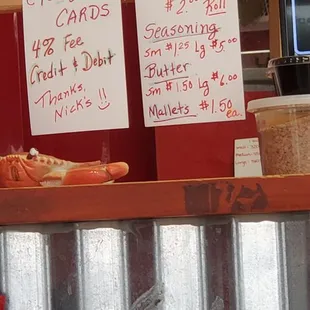 CARDS
4% Fee
Credit & Debit
Thanks,
Nick's
$2.00 Roll
Seasoning
Sm $1.25 Lg $5.00
Butter
Sm $1.50 Lg $6.00
Mallets $1.50 ea.